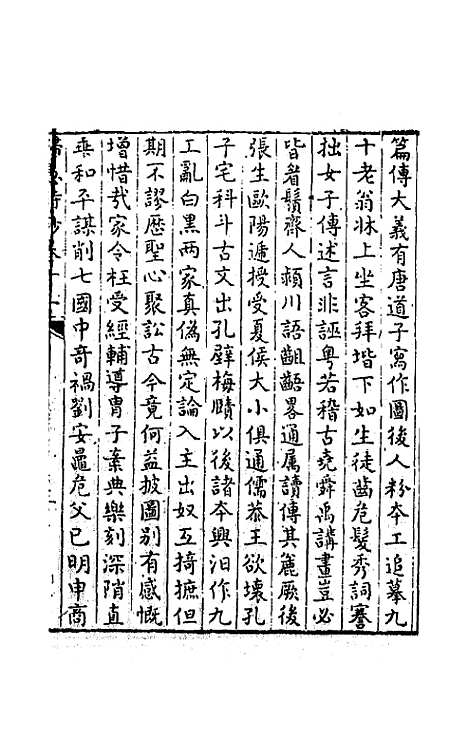 篇傳大義有唐道子寫作圖後人粉本工追摹九
十老翁牀上坐客拜堦下如生徒齒危髮秀詞謇
拙女子傳述言非誣粤若稽古堯舜禹講畫豈必
皆著鬚齊人頛川語齟齬畧通属讀傳其麄厥後
張生歐陽遞授受夏侯大小俱通儒恭王欲壞孔
子宅科斗古文出孔壁梅賾以後諸本興汨作九
工亂白黑两家真偽無定論入主出奴互掎摭但
期不謬歴聖心聚訟古今竟何益披圖别有感慨
增惜哉家令枉受經輔導胄子棄典樂刻深陗直
乖和平謀削七國中奇禍劉安鼂危父已明申商